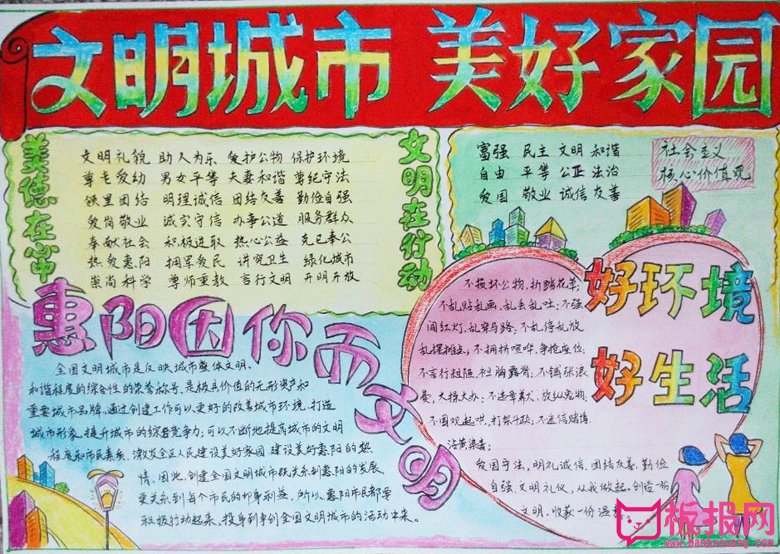 文明城市 美好家园
美德在心中
文明礼貌 助人为乐 爱护公物 保护环境
尊老爱幼 男女平等 夫妻和谐 尊纪守法
邻里团结 明理诚信 团结友善 勤俭自强
爱岗敬业 诚实守信 办事公道 服务群众
奉献社会 积极进取 热心公益 克己奉公
热爱惠阳 拥军爱民 讲究卫生 绿化城市
崇尚科学 尊师重教 言行文明 开明开放
文明在行动
富强 民主 文明 和谐
自由 平等 公正 法治
爱国 敬业 诚信 友善
社会主义
核心价值观
惠阳因你而文明
全国文明城市是反映城市整体文明、
和谐程度的综合性的荣誉称号、是极具价值的无形资产和
重要城市品牌。通过创建工作可以更好的改善城市环境、打造
城市形象、提升城市的综合竞争力;可以不断地提高城市的文明
程度和市民素质、激发全区人民建设美好家园、建设美好惠阳的热
情、因此,创建全国文明城市既关系到惠阳的发展、
更关系到每个市民的切身利益。所以、惠阳市民都要
积极行动起来、投身到争创全国文明城市的活动中来。
好环境
好生活
不损坏公物、折踏花草;
不乱贴乱画、乱丢乱吐;不强
闯红灯、乱穿马路、不乱停乱放
乱摆摊点、不拥挤喧哗、争抢座位;
不言行粗陋、袒胸露背、不铺张浪
费、大操大办;不违章养犬、放纵宠物、
不围观起哄、打架斗殴;不迷信赌博、
沾黄染毒;
爱国守法,明礼诚信、团结友善、勤俭
自强、文明礼仪、从我做起。创造一份
文明、收获一份温
板报网
www.banbaowang.com